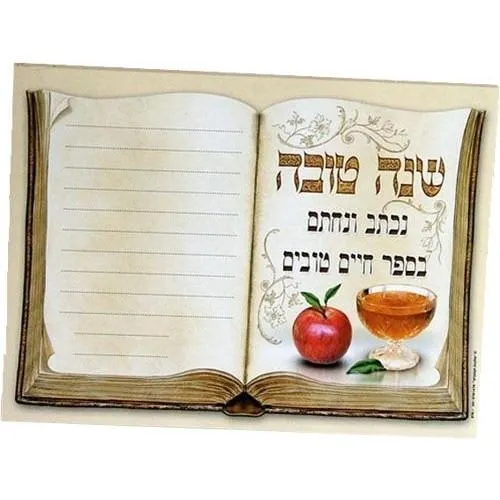 שנה טובה
נכתב ונחתם
בספר חיים טובים